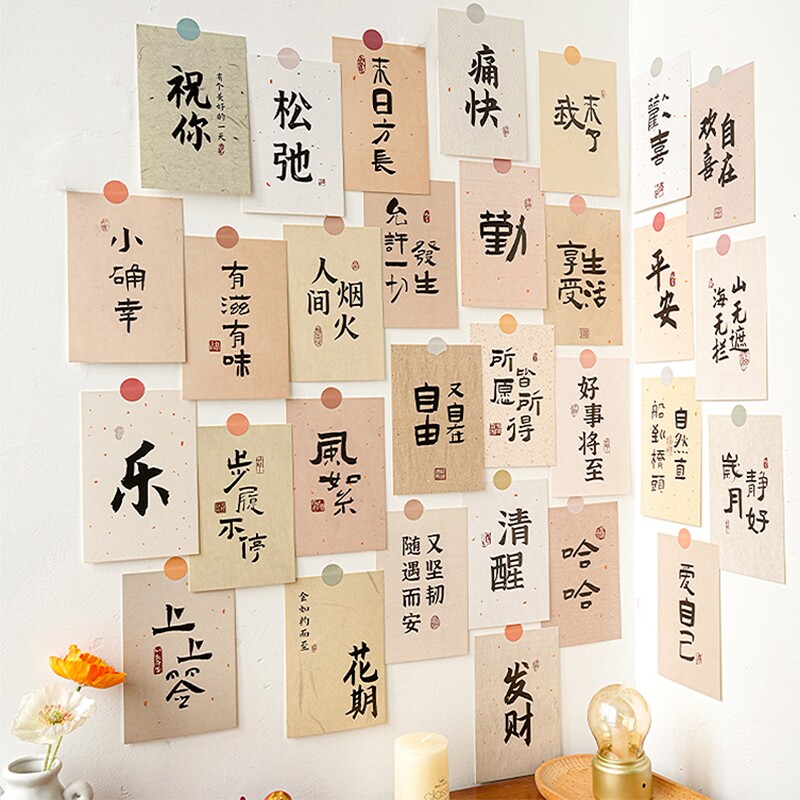 祝你
有个美好的一天
松弛
来日方長
痛快
我
来了
歡喜
自在
欢喜
小确幸
有滋有味
人间
烟火
允許一切
發生
勤
享受
生活
平安
山无遮
海无拦
乐
步履不停
風如
自由
又自在
所愿
皆所得
好事将至
船到橋頭
自然直
歲月
静好
上上签
花期
会如约而至
又坚韧
随遇而安
清醒
哈哈
爱自己
发财